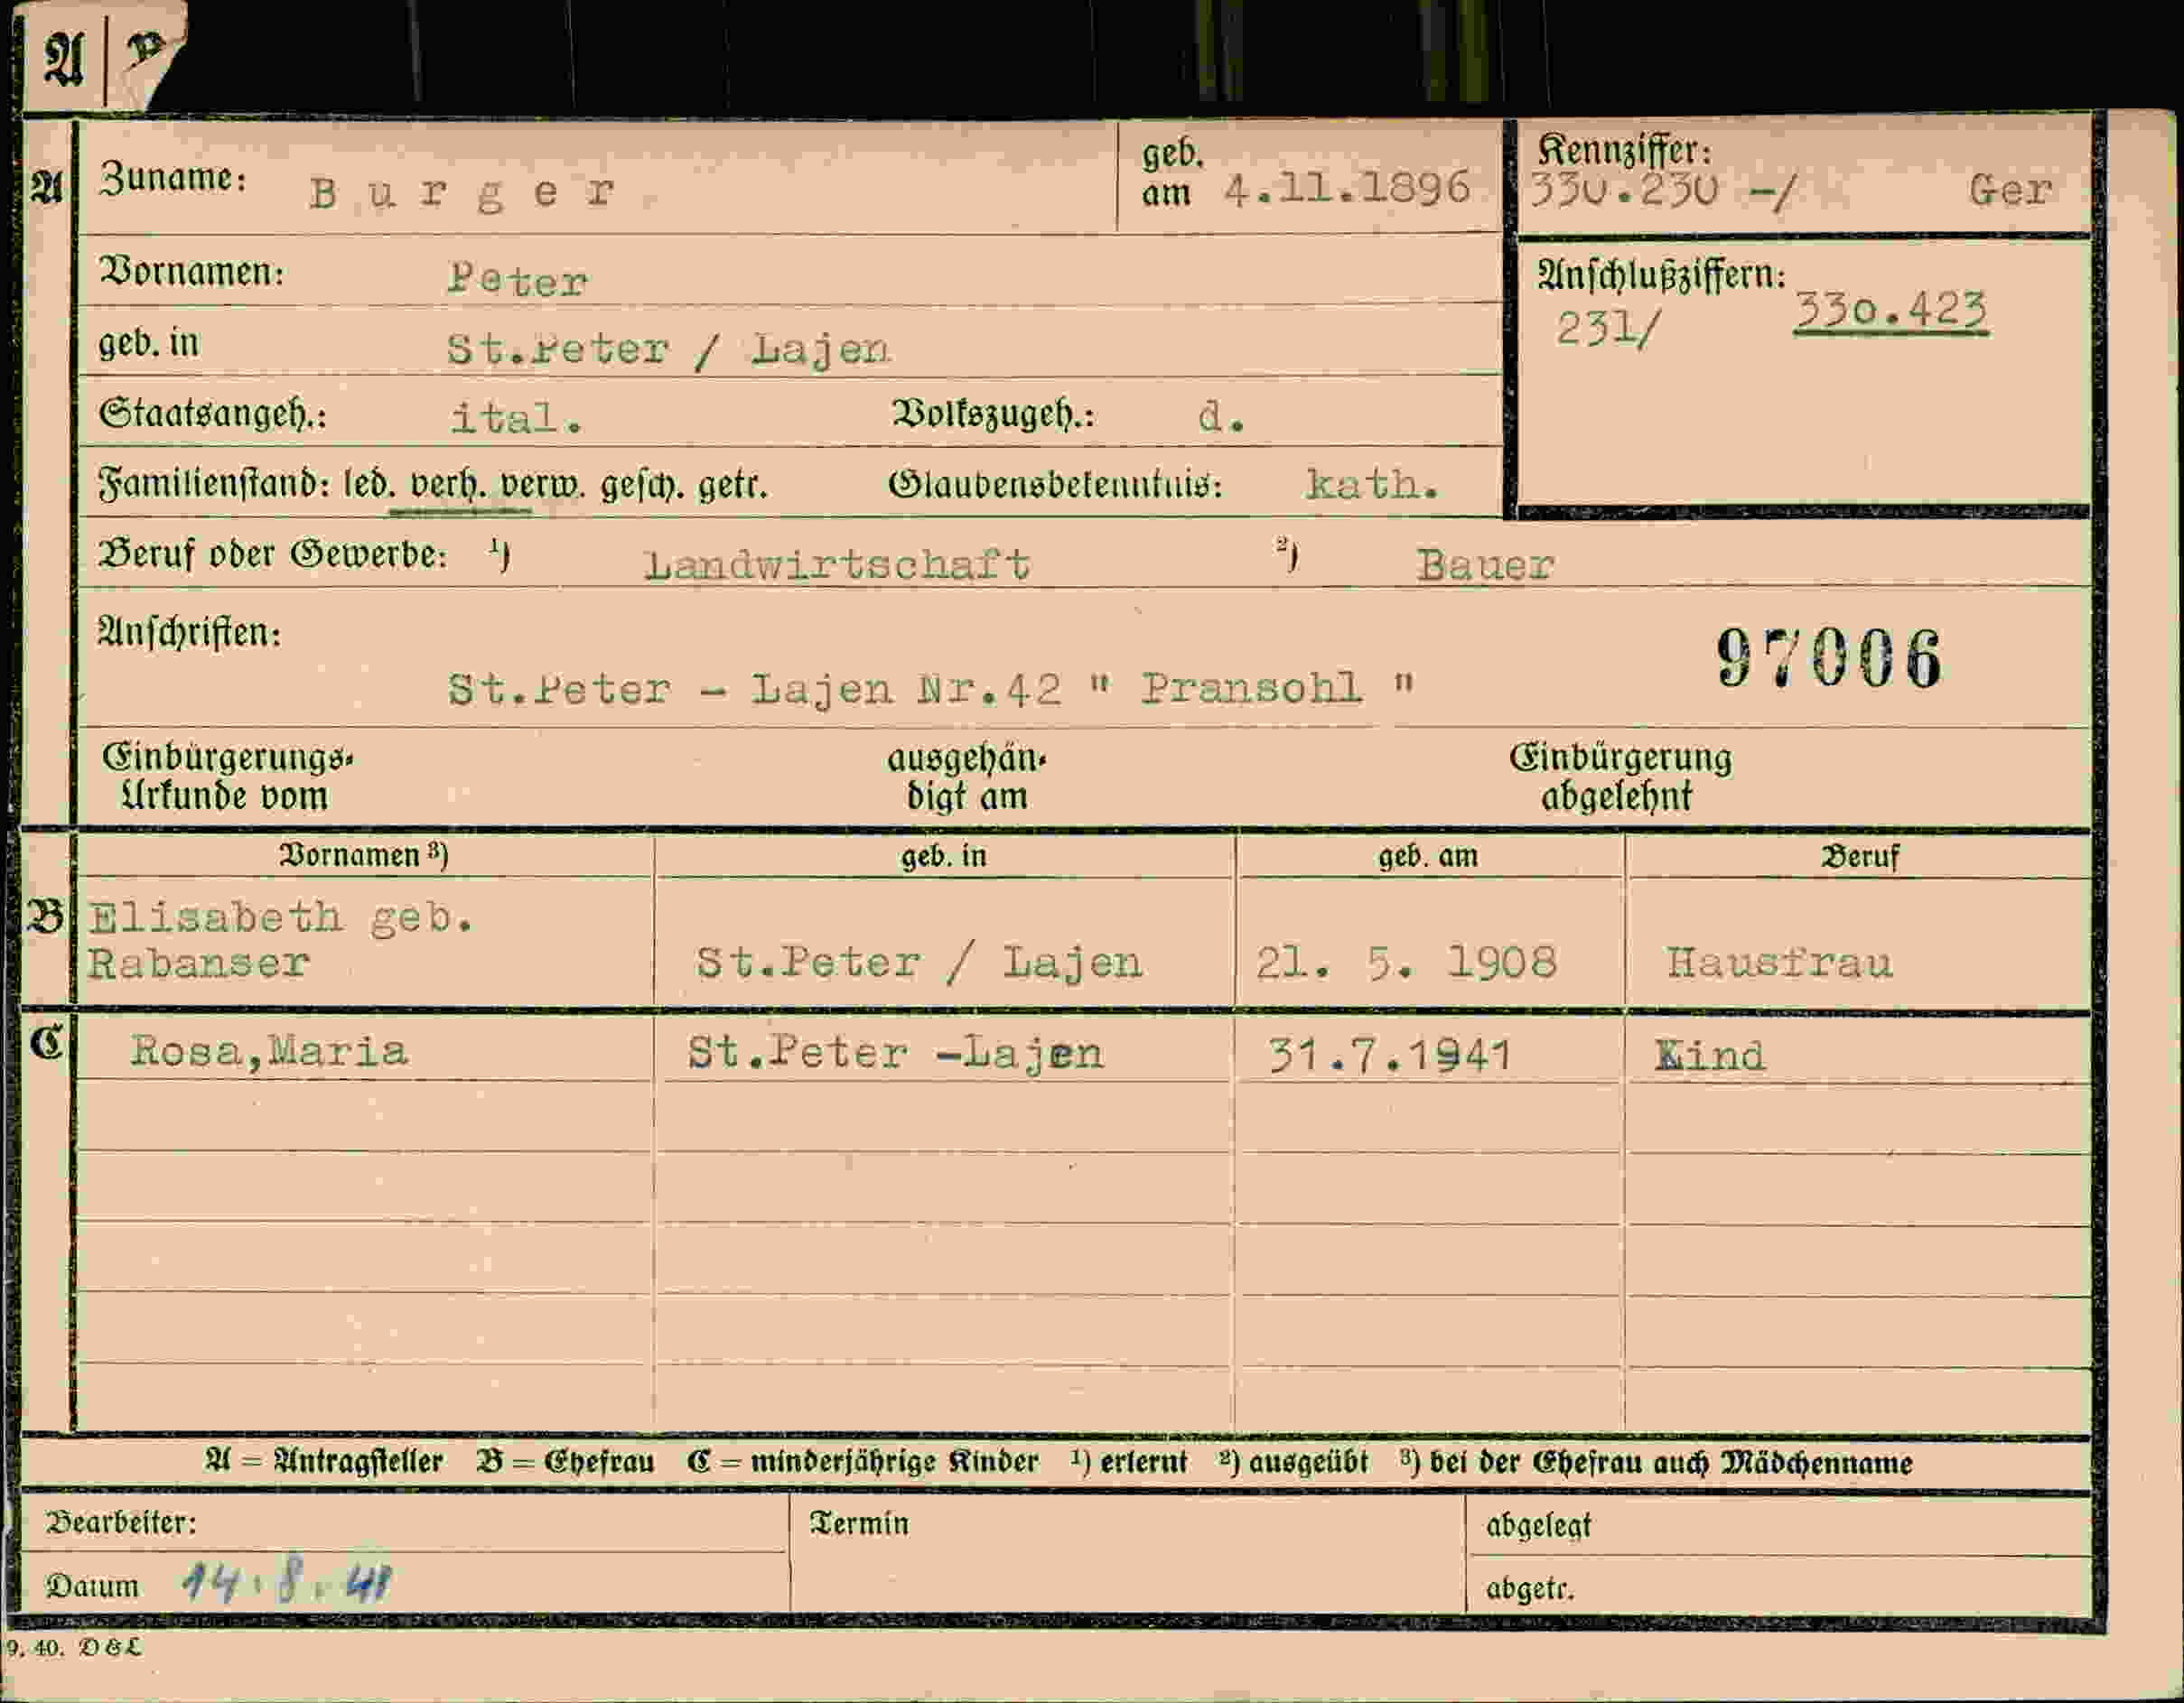 A
A
Zuname: Burger
geb. am 4.11.1896
Kennziffer:
330.230 -/ Ger
Vornamen: Peter
Anschlußziffern:
231/ 330.423
geb. in St.Peter / Lajen
Staatsangeh.: ital. Volkszugeh.: d.
Familienstand: led. verh. verw. gesch. getr. Glaubensbekenntnis: kath.
Beruf oder Gewerbe: 1) Landwirtschaft 2) Bauer
Anschriften:
97006
St.Peter - Lajen Nr.42 " Pransohl "
Einbürgerungs- ausgehän- Einbürgerung
Urkunde vom digt am abgelehnt
Vornamen 3) geb. in geb. am Beruf
B Elisabeth geb.
Rabanser St.Peter / Lajen 21. 5. 1908 Hausfrau
C Rosa,Maria St.Peter -Lajen 31.7.1941 Kind
A = Antragsteller B = Ehefrau C = minderjährige Kinder 1) erlernt 2) ausgeübt 3) bei der Ehefrau auch Mädchenname
Bearbeiter: Termin abgelegt
Datum 14.8.41 abgetr.
9. 40. D&L